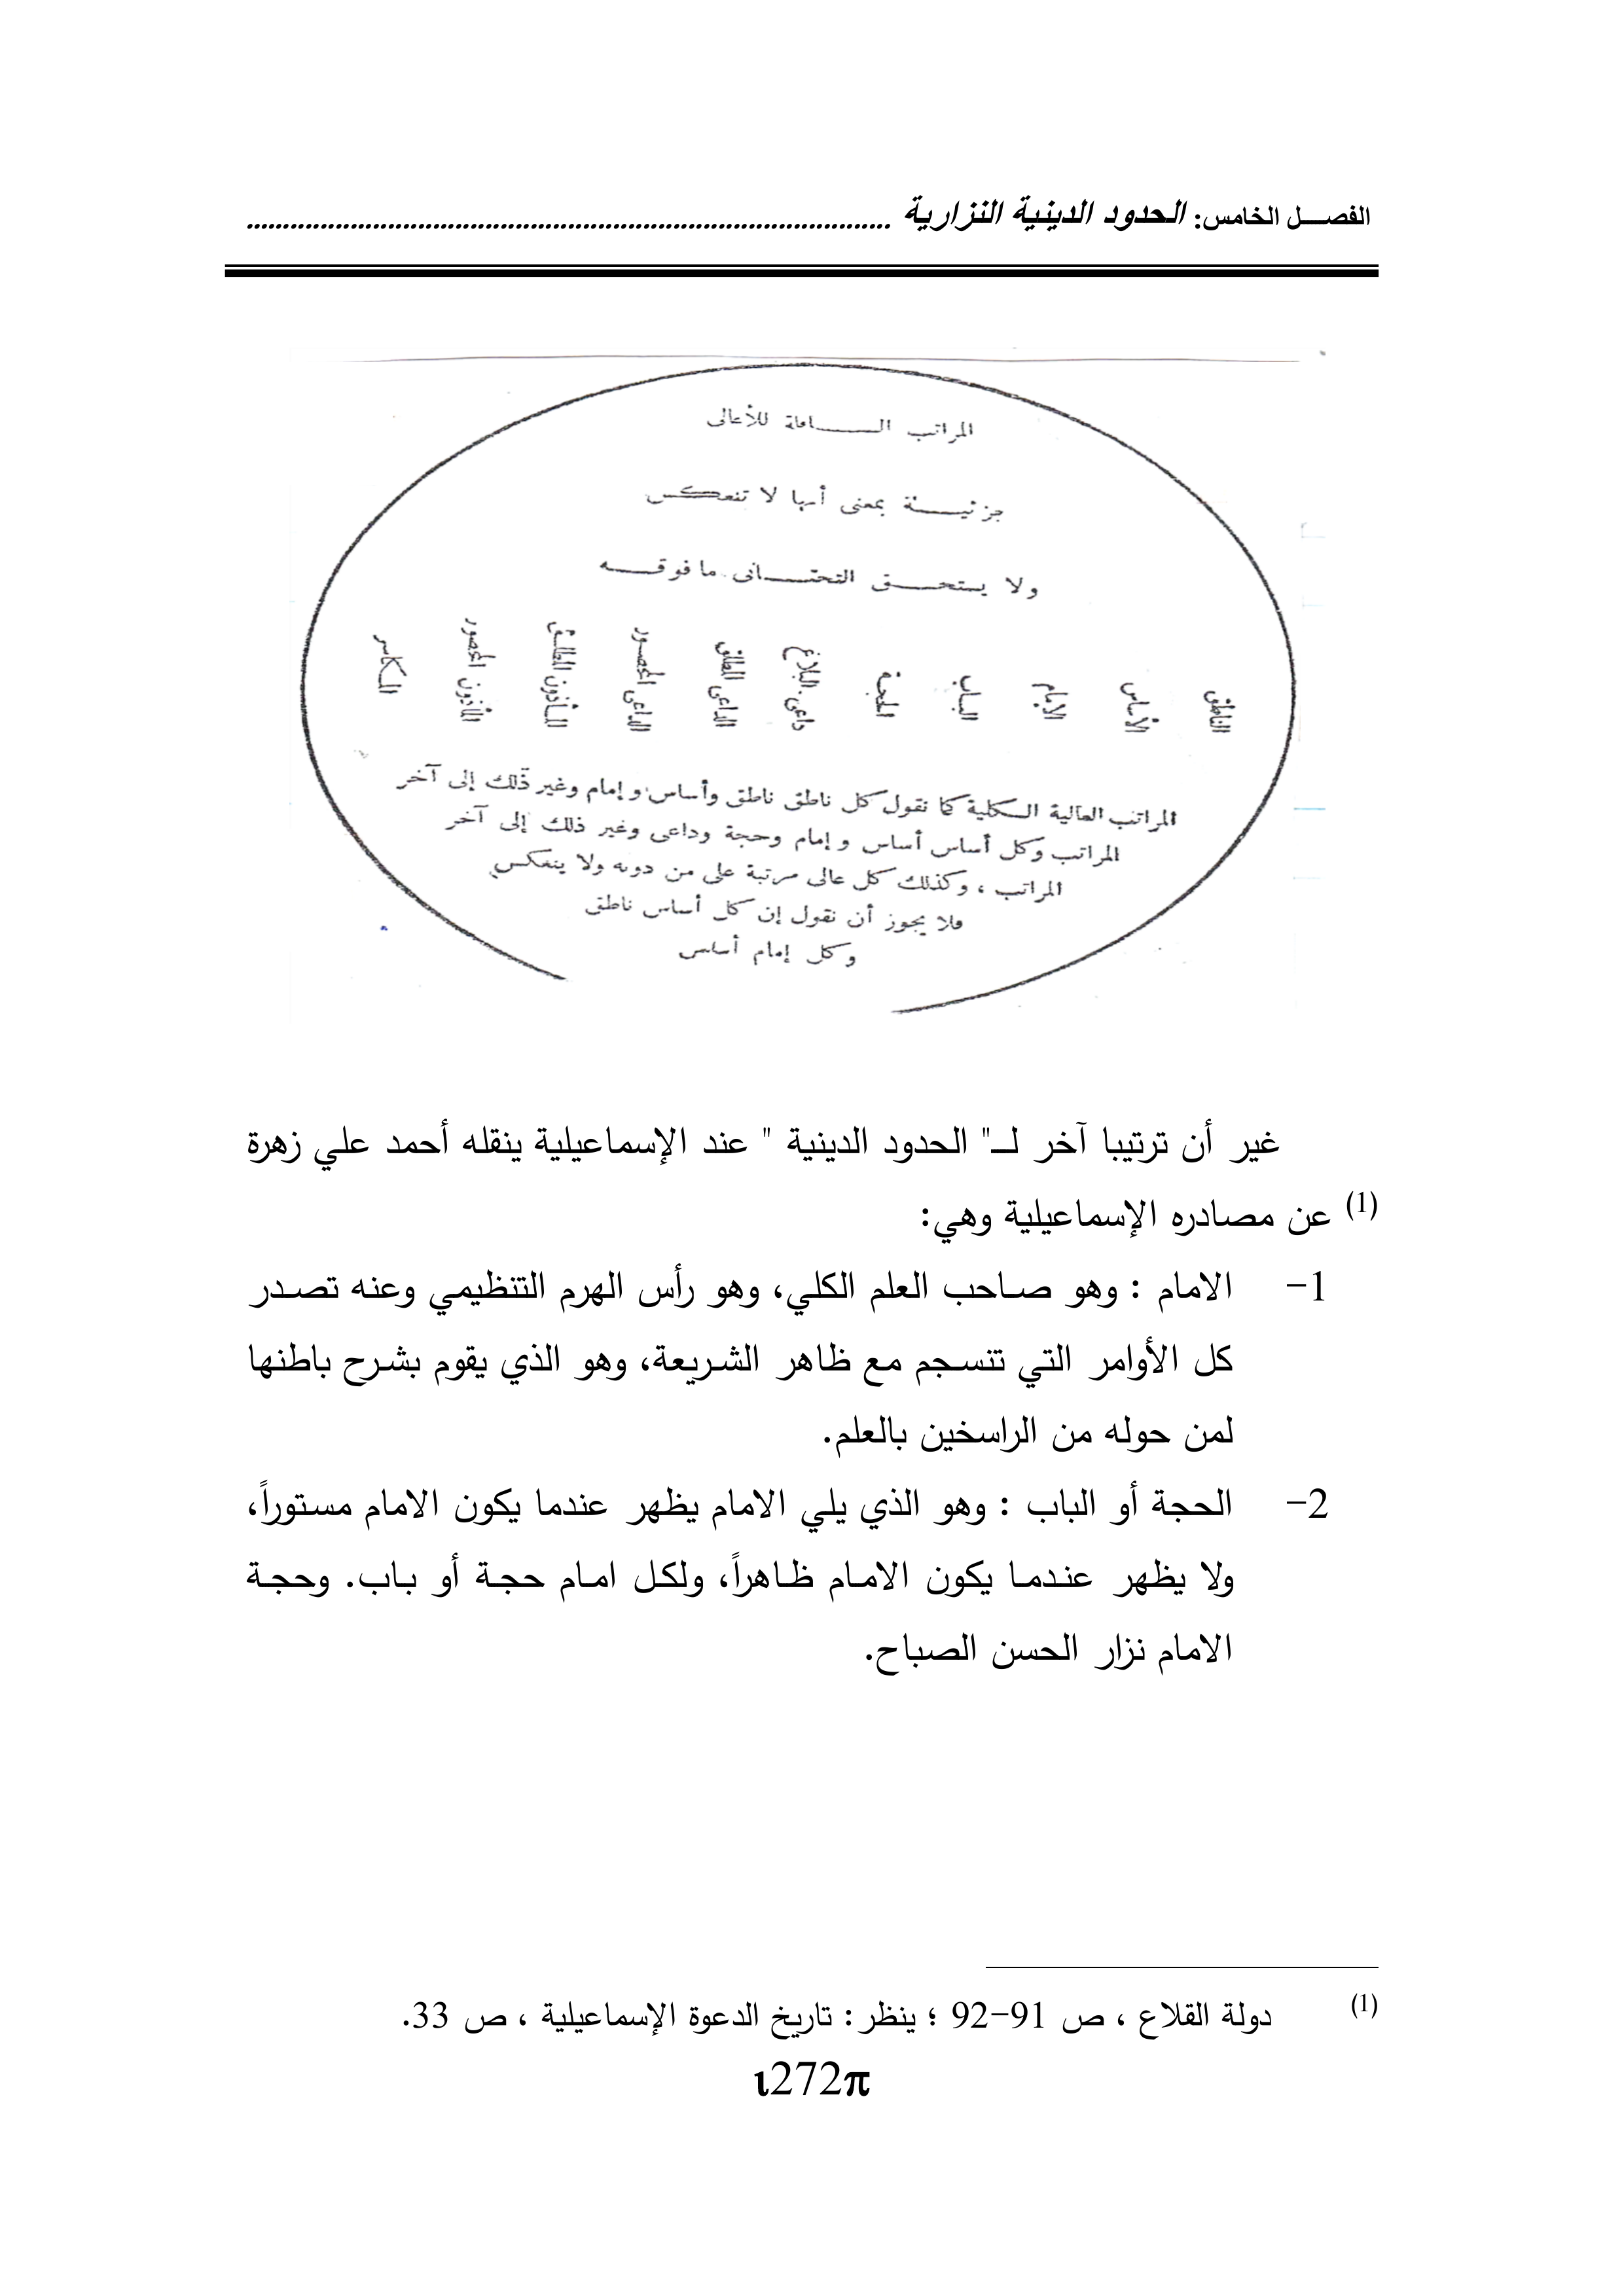 الفصـــل الخامس: الحدود الدينية النزارية ......................................................................................
المراتب الســـــافلة للأعالى
جزئيـــــة بمعنى أنها لا تنعكس
ولا يستحـــق التحتـــانى ما فوقـــه
الناطق الأساس الامام الباب الحجة داعى البلاغ الداعى المطلق الداعى المحصور المأذون المطلق المأذون المحصور المكاسر
المراتب العالية الكلية كما نقول كل ناطق ناطق وأساس وإمام وغير ذلك إلى آخر
المراتب وكل أساس أساس وإمام وحجة وداعى وغير ذلك إلى آخر
المراتب ، وكذلك كل عالى مرتبة على من دونه ولا ينعكس
فلا يجوز أن نقول إن كل أساس ناطق
وكل إمام أساس
غير أن ترتيبا آخر لـ" الحدود الدينية " عند الإسماعيلية ينقله أحمد علي زهرة
(1) عن مصادره الإسماعيلية وهي:
1- الامام : وهو صاحب العلم الكلي، وهو رأس الهرم التنظيمي وعنه تصدر
كل الأوامر التي تنسجم مع ظاهر الشريعة، وهو الذي يقوم بشرح باطنها
لمن حوله من الراسخين بالعلم.
2- الحجة أو الباب : وهو الذي يلي الامام يظهر عندما يكون الامام مستوراً،
ولا يظهر عندما يكون الامام ظاهراً، ولكل امام حجة أو باب. وحجة
الامام نزار الحسن الصباح.
(1) دولة القلاع ، ص 91-92 ؛ ينظر: تاريخ الدعوة الإسماعيلية ، ص 33.
ι272π